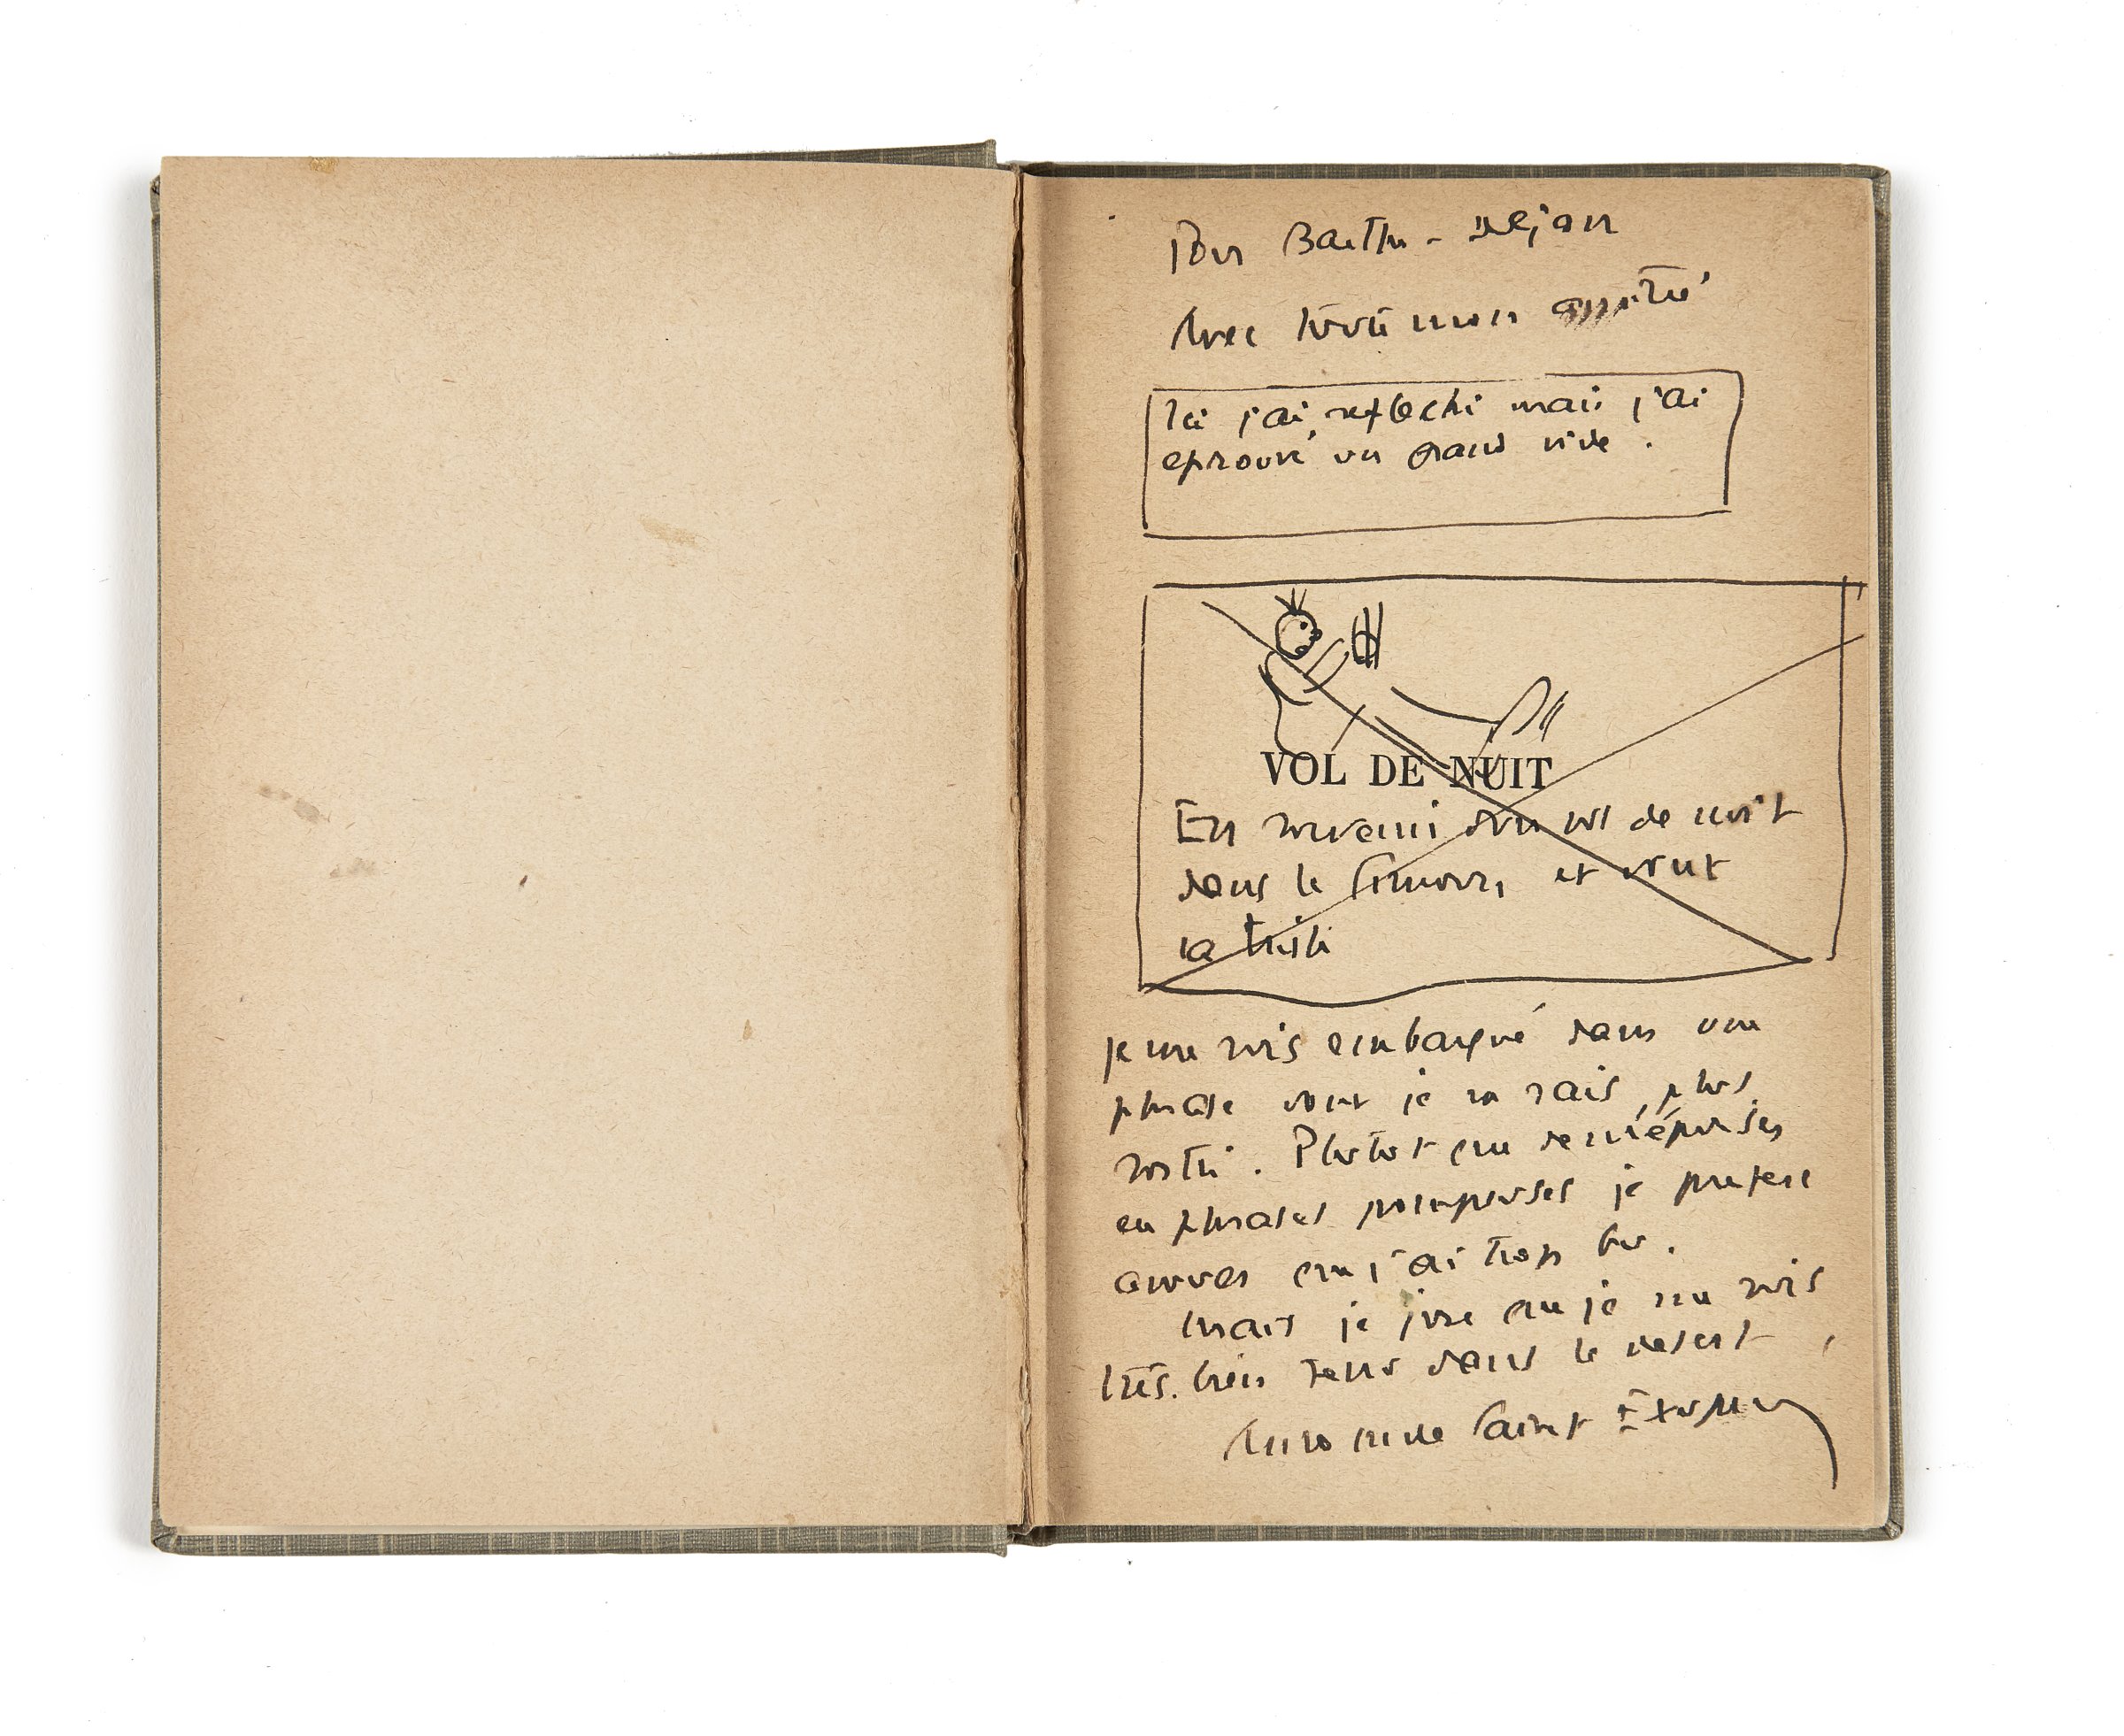 Pour Barthe-Dejean
Avec toute mon amitié
Ici j'ai reflechi mais j'ai
eprouvé un grand vide.
VOL DE NUIT
En souvenir d'un vol de nuit
dans le Limousin et dont
la triste
Je me suis embarqué dans une
phrase dont je ne sais plus
sortir. Plutot que de m'épuiser
en phrases pompeuses je prefere
avouer que j'ai trop bu.
Mais je jure que je me suis
très bien tenu dans le desert
Antoine de Saint Exupéry